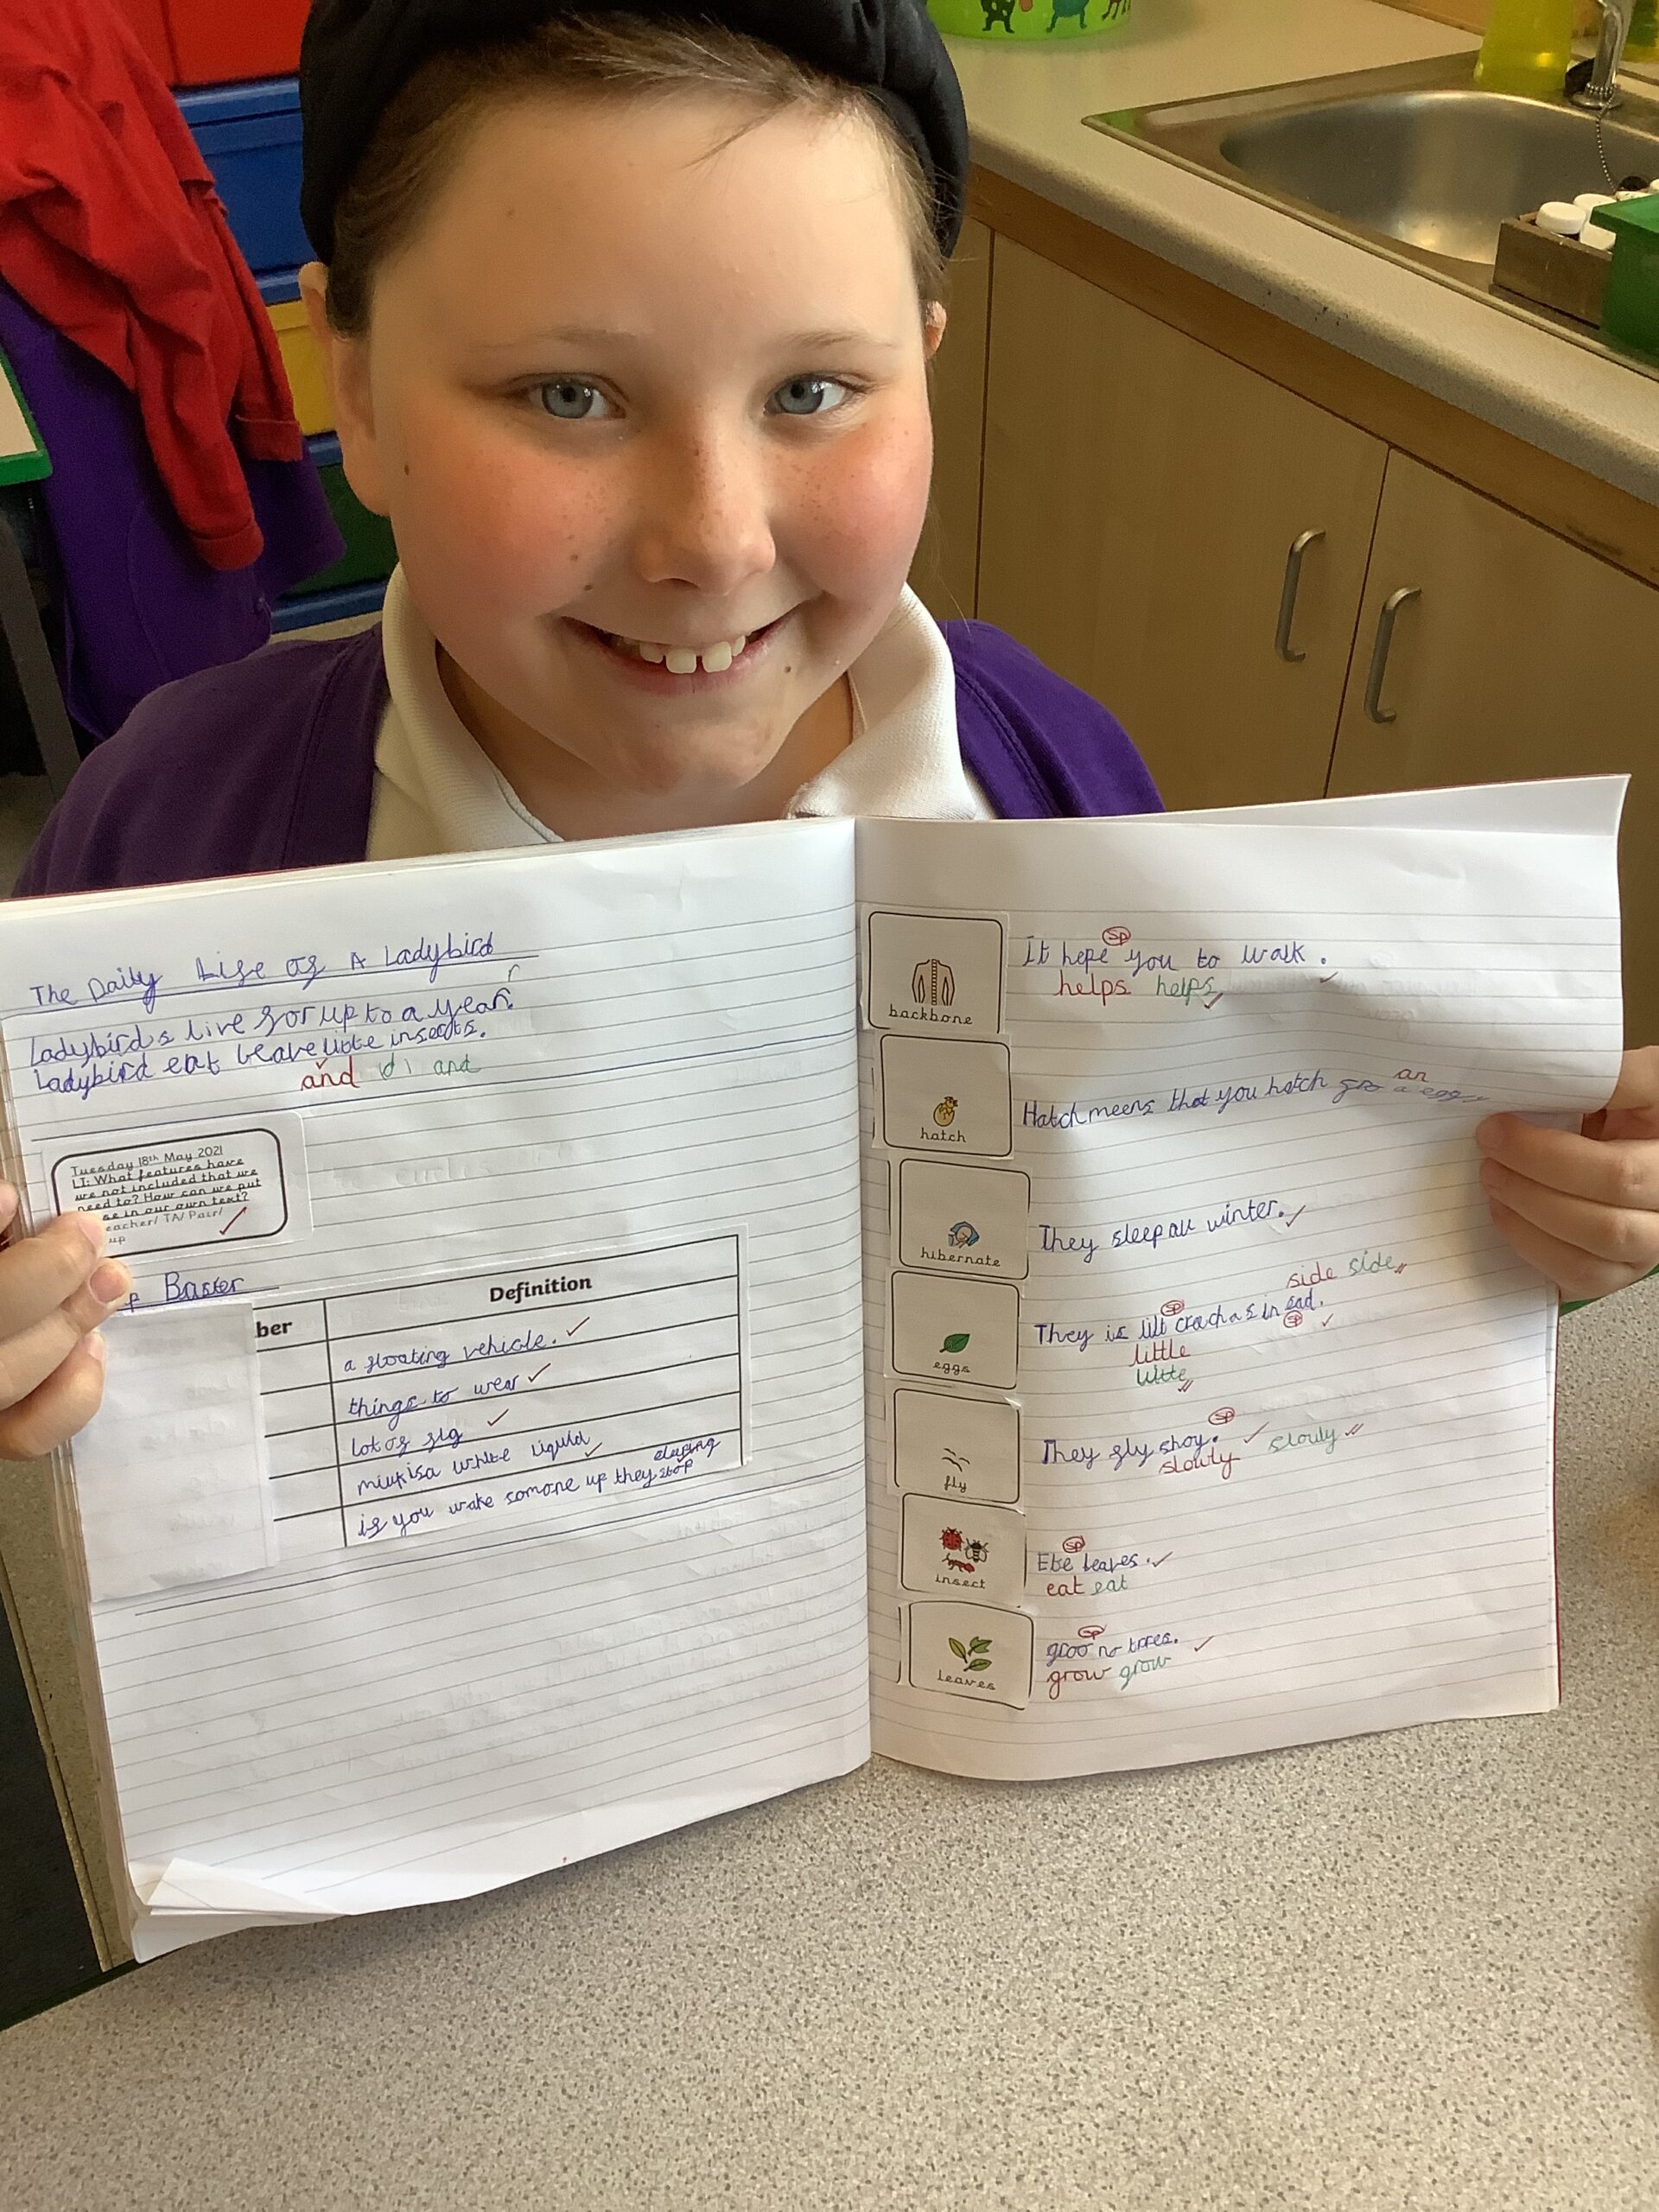 The Daily Life of A Ladybird
r
Ladybirds live for up to a year.
Ladybird eat leave insects.
and and
Tuesday 18th May 2021
LI: What features have
we not included that we
need to? How can we put
se in our own text?
eacher/ TA/ Pair/
up
p Baster
ber Definition
a floating vehicle.
things to wear
lot of
milk is a white liquid
if you wake somone up they stop
backbone
sp
It hepe you to walk.
helps helps
hatch
an
Hatch meens that you hatch a egg
hibernate
They sleep all winter.
eggs
side side
sp
They is in
sp
little
little
fly
sp
They fly shoy.
slowly slowly
insect
sp
Ete leaves.
eat eat
leaves
sp
groo no trees.
grow grow